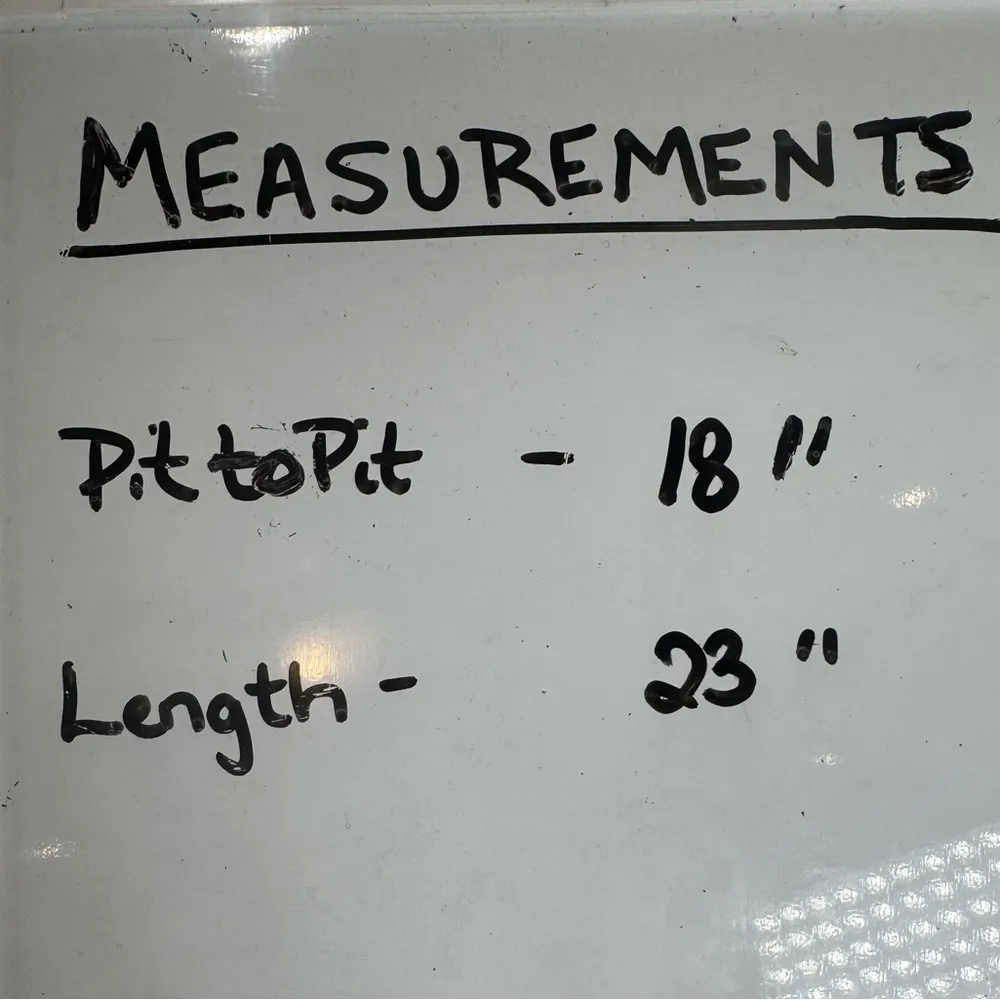 MEASUREMENTS
Pit to Pit - 18"
Length - 23"